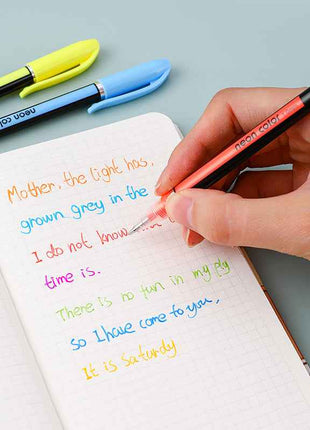 neon col
neon color
Mother, the light has,
grown grey in the
I do not know
time is.
There is no fun in my
so I have come to you,
It is saturdy